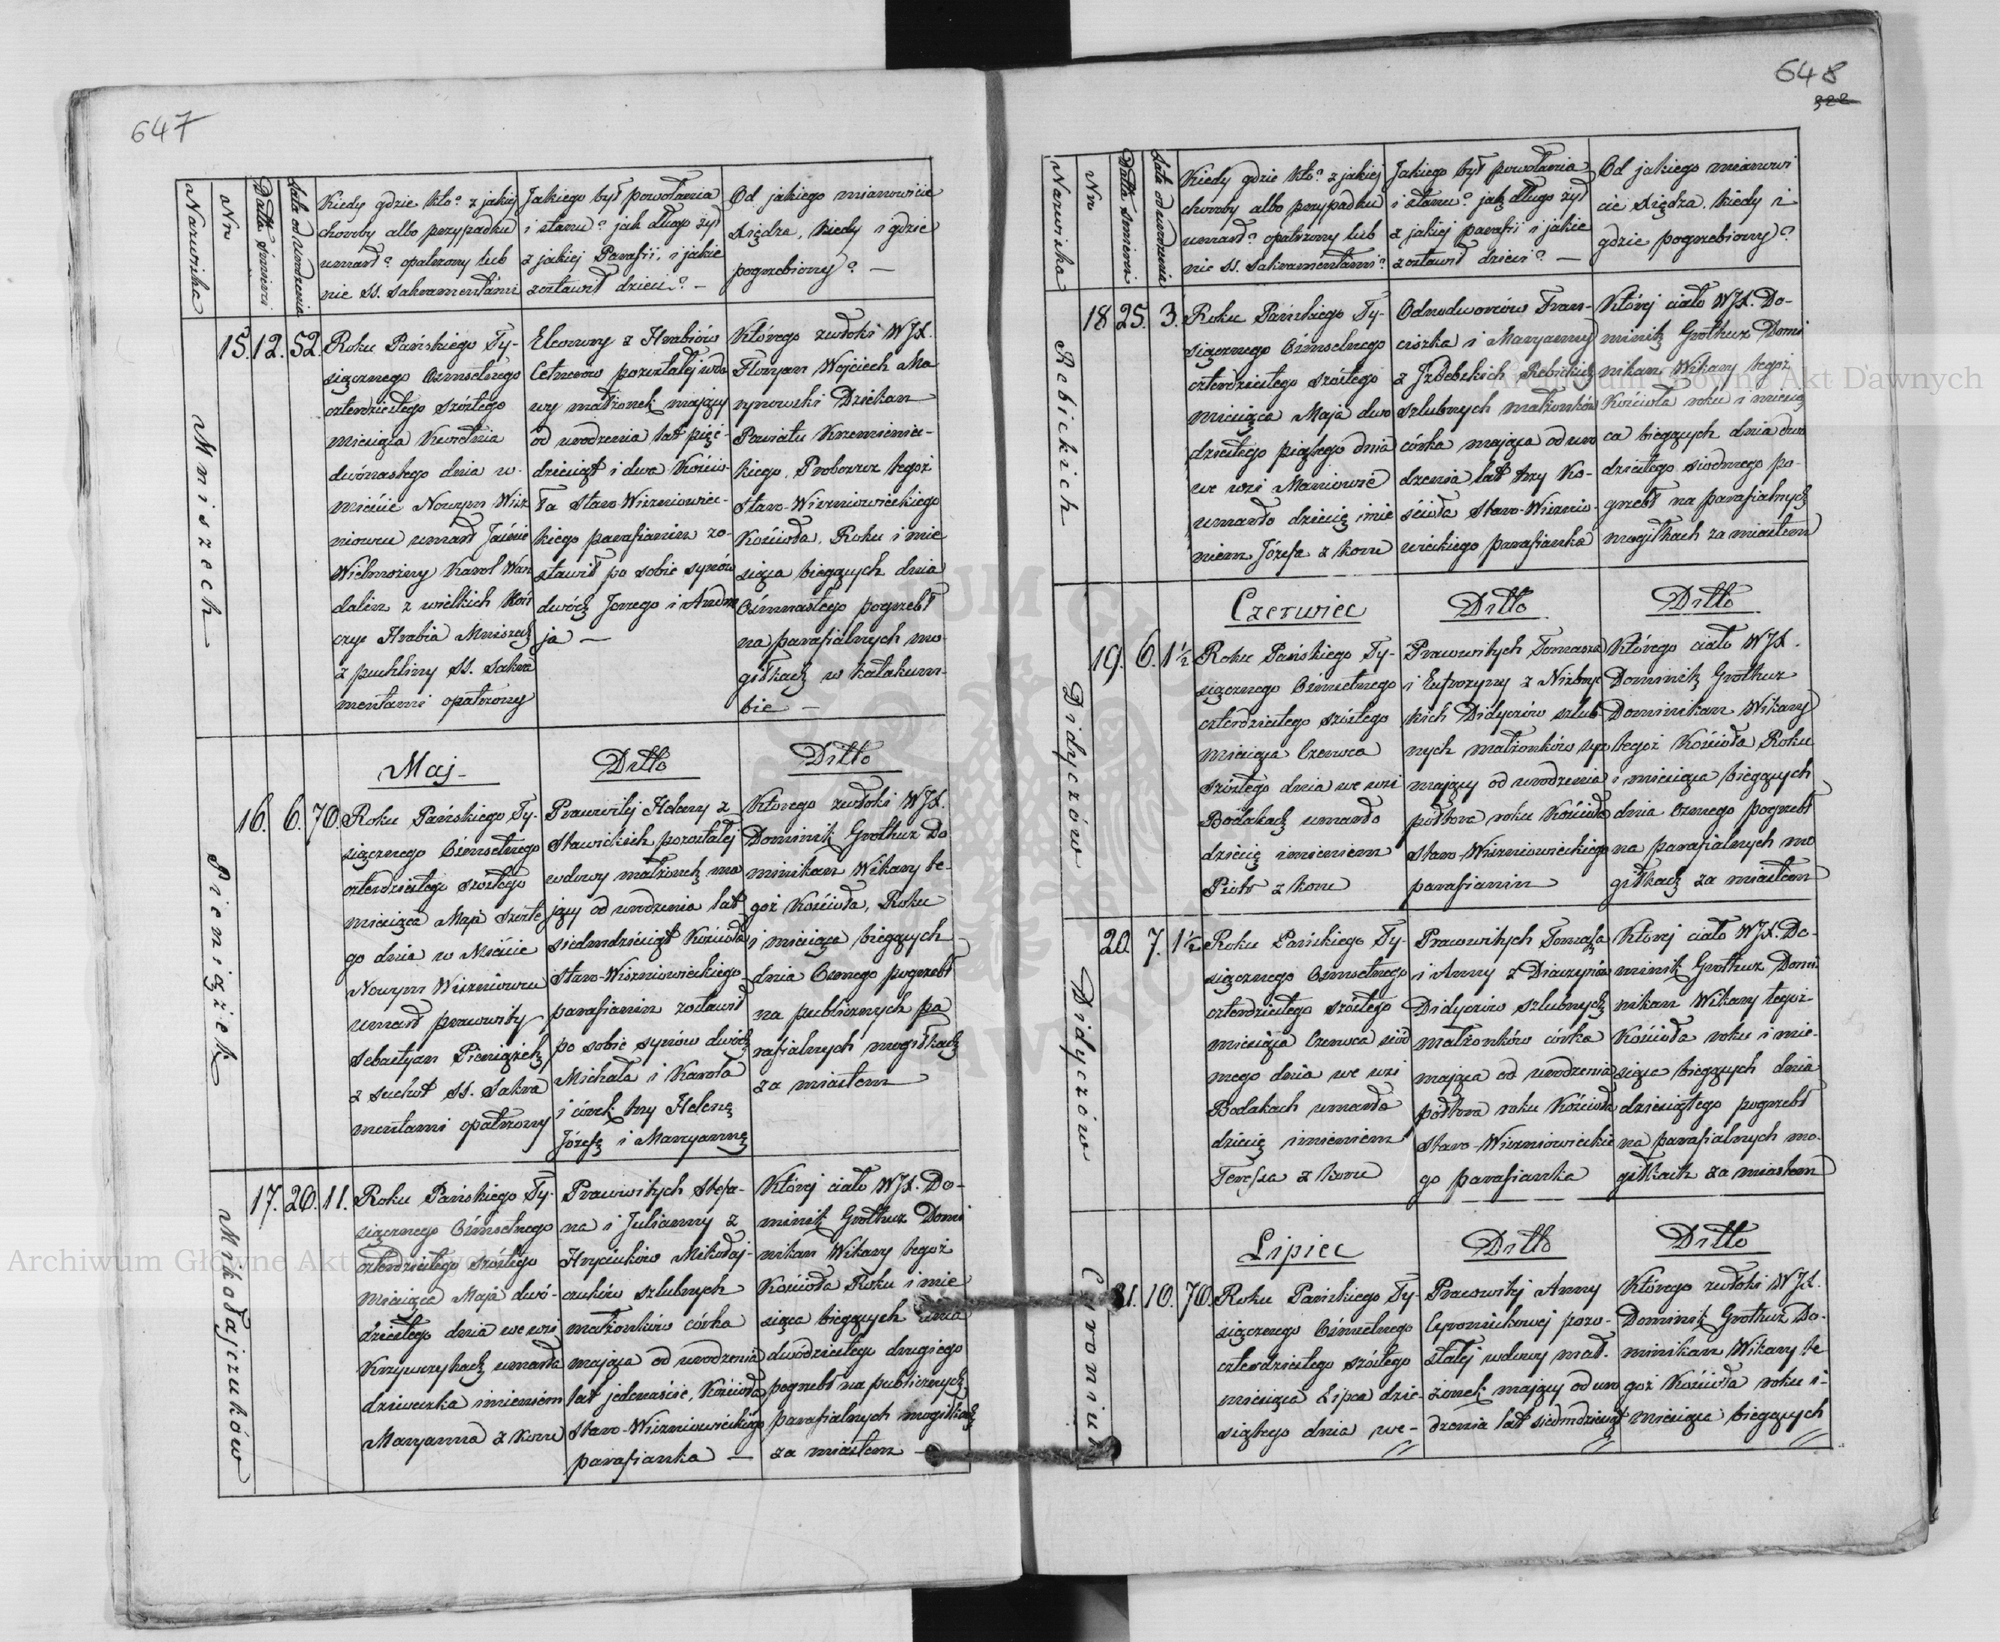 647
Nazwiska
Nro
Datta śmierci
Lata od urodzenia
Kiedy gdzie kto? z jakiej
choroby albo przypadku
umarł? opatrzony lub
nie SS. Sakramentami
Jakiego był powołania
i stanu? jak długo żył
z jakiej Parafii, i jakie
zostawił dzieci? —
Od jakiego mianowicie
Xiędza, kiedy i gdzie
pogrzebiony? —
Mniszech
15. 12. 52.
Roku Pańskiego Ty-
siącznego Ośmsetnego
czterdziestego szóstego
miesiąca Kwietnia
dwónastego dnia w
mieście Nowym Wisz
niowcu umarł Jaśnie
Wielmożny Karol Wan
dalin z wielkich Koń
czyc Hrabia Mniszech
z puchliny SS. Sakra
mentami opatrzony
Eleonory z Hrabiów
Cetnerów pozostałej wdo
wy małżonek mający
od urodzenia lat pięć-
dziesiąt i dwa Kościo-
ła Staro-Wiszniowiec-
kiego parafianin zo-
stawił po sobie synów
dwóch Jerzego i Andrze
ja —
Którego zwłoki WJX.
Floryan Wojciech Ma
rynowski Dziekan
Powiatu Krzemieniec-
kiego, Proboszcz tegoż
Staro-Wiszniowieckiego
Kościoła, Roku i mie
siąca bieżących dnia
Ośmnastego pogrzebł
na parafialnych mo-
giłkach w katakum-
bie —
Maj
Ditto
Ditto
Pieniążek
16. 6. 70.
Roku Pańskiego Ty-
siącznego Ośmsetnego
czterdziestego szóstego
miesiąca Maja szóste
go dnia w Mieście
Nowym Wiszniowcu
umarł pracowity
Sebastyan Pieniążek
z suchot SS. Sakra
mentami opatrzony
Pracowitej Heleny z
Stawickich pozostałej
wdowy małżonek ma
jący od urodzenia lat
siedmdziesiąt Kościoła
Staro-Wiszniowieckiego
parafianin zostawił
po sobie synów dwóch
Michała i Karola
i córek trzy Helenę
Józefę i Maryannę
Którego zwłoki WJX.
Dominik Grothuz Do
minikan Wikary te-
goż Kościoła, Roku
i miesiąca bieżących
dnia Osmego pogrzebł
na publicznych pa
rafialnych mogiłkach
za miastem
Mikołajczuków
17. 20. 11.
Roku Pańskiego Ty-
siącznego Ośmsetnego
czterdziestego szóstego
Miesiąca Maja dwó-
dziestego dnia we wsi
Krzywczykach umarła
dziewczka imieniem
Maryanna z koru
Pracowitych Stefa-
na i Julianny z
Hryciuków Mikołaj-
czuków szlubnych
małżonków córka
mająca od urodzenia
lat jedenaście, Kościoła
Staro-Wiszniowieckiego
parafianka —
Której ciało WJX. Do-
minik Grothuz Domi
nikan Wikary tegoż
Kościoła Roku i mie
siąca bieżących dnia
dwódziestego drugiego
pogrzebł na publicznych
parafialnych mogiłkach
za miastem —
648
322
Nazwiska
Nro
Datta śmierci
Lata od urodzenia
Kiedy gdzie kto? z jakiej
choroby albo przypadku
umarł? opatrzony lub
nie SS. Sakramentami?
Jakiego był powołania
i stanu? jak długo żył
z jakiej parafii i jakie
zostawił dzieci? —
Od jakiego mianowi
cie Xiędza, kiedy i
gdzie pogrzebiony?
Rebickich
18 25. 3.
Roku Pańskiego Ty-
siącznego Ośmsetnego
czterdziestego szóstego
miesiąca Maja dwó
dziestego piątego dnia
we wsi Maniowie
umarło dziecię imie
niem Józefa z koru
Odnodworców Fran-
ciszka i Maryanny
z Jzdebskich Rebickich
szlubnych małżonków
córka mająca od uro
dzenia lat trzy Ko-
ścioła Staro-Wisznio-
wieckiego parafianka
Której ciało WJX. Do-
minik Grothuz Domi
nikan Wikary tegoż
Kościoła roku i miesią
ca bieżących dnia dwó
dziestego siódmego po-
grzebł na parafialnych
mogiłkach za miastem
Czerwiec
Ditto
Ditto
Didyczów
19. 6. 1½
Roku Pańskiego Ty-
siącznego Ośmsetnego
czterdziestego szóstego
Miesiąca Czerwca
szóstego dnia we wsi
Bodakach umarło
dziecię imieniem
Piotr z koru
Pracowitych Tomasza
i Eufrozyny z Nizbnyc
kich Didyczów szlub
nych małżonków syn
mający od urodzenia
półtora roku Kościoła
Staro-Wiszniowieckiego
parafianin
Którego ciało WJX.
Dominik Grothuz
Dominikan Wikary
tegoż Kościoła Roku
i miesiąca bieżących
dnia Osmego pogrzebł
na parafialnych mo
giłkach za miastem
Didyczów
20. 7. 1½
Roku Pańskiego Ty-
siącznego Ośmsetnego
czterdziestego szóstego
miesiąca Czerwca siód
mego dnia we wsi
Bodakach umarło
dziecię imieniem
Teressa z koru
Pracowitych Tomasza
i Anny z Diaczynów
Didyczów szlubnych
małżonków córka
mająca od urodzenia
półtora roku Kościoła
Staro-Wiszniowieckie
go parafianka
Której ciało WJX. Do-
minik Grothuz Domi
nikan Wikary tegoż
Kościoła roku i mie-
siąca bieżących dnia
dziesiątego pogrzebł
na parafialnych mo-
giłkach za miastem
Lipiec
Ditto
Ditto
21. 10. 70.
Roku Pańskiego Ty-
siącznego Ośmsetnego
czterdziestego szóstego
miesiąca Lipca dzie-
siątego dnia we-
Pracowitej Anny
Cyroniukowej pozo-
stałej wdowy mał-
żonek mający od uro
dzenia lat siedmdziesiąt
Którego zwłoki WJX.
Dominik Grothuz Do-
minikan Wikary te
goż Kościoła roku i-
miesiąca bieżących
Archiwum Główne Akt Dawnych
Archiwum Główne Akt